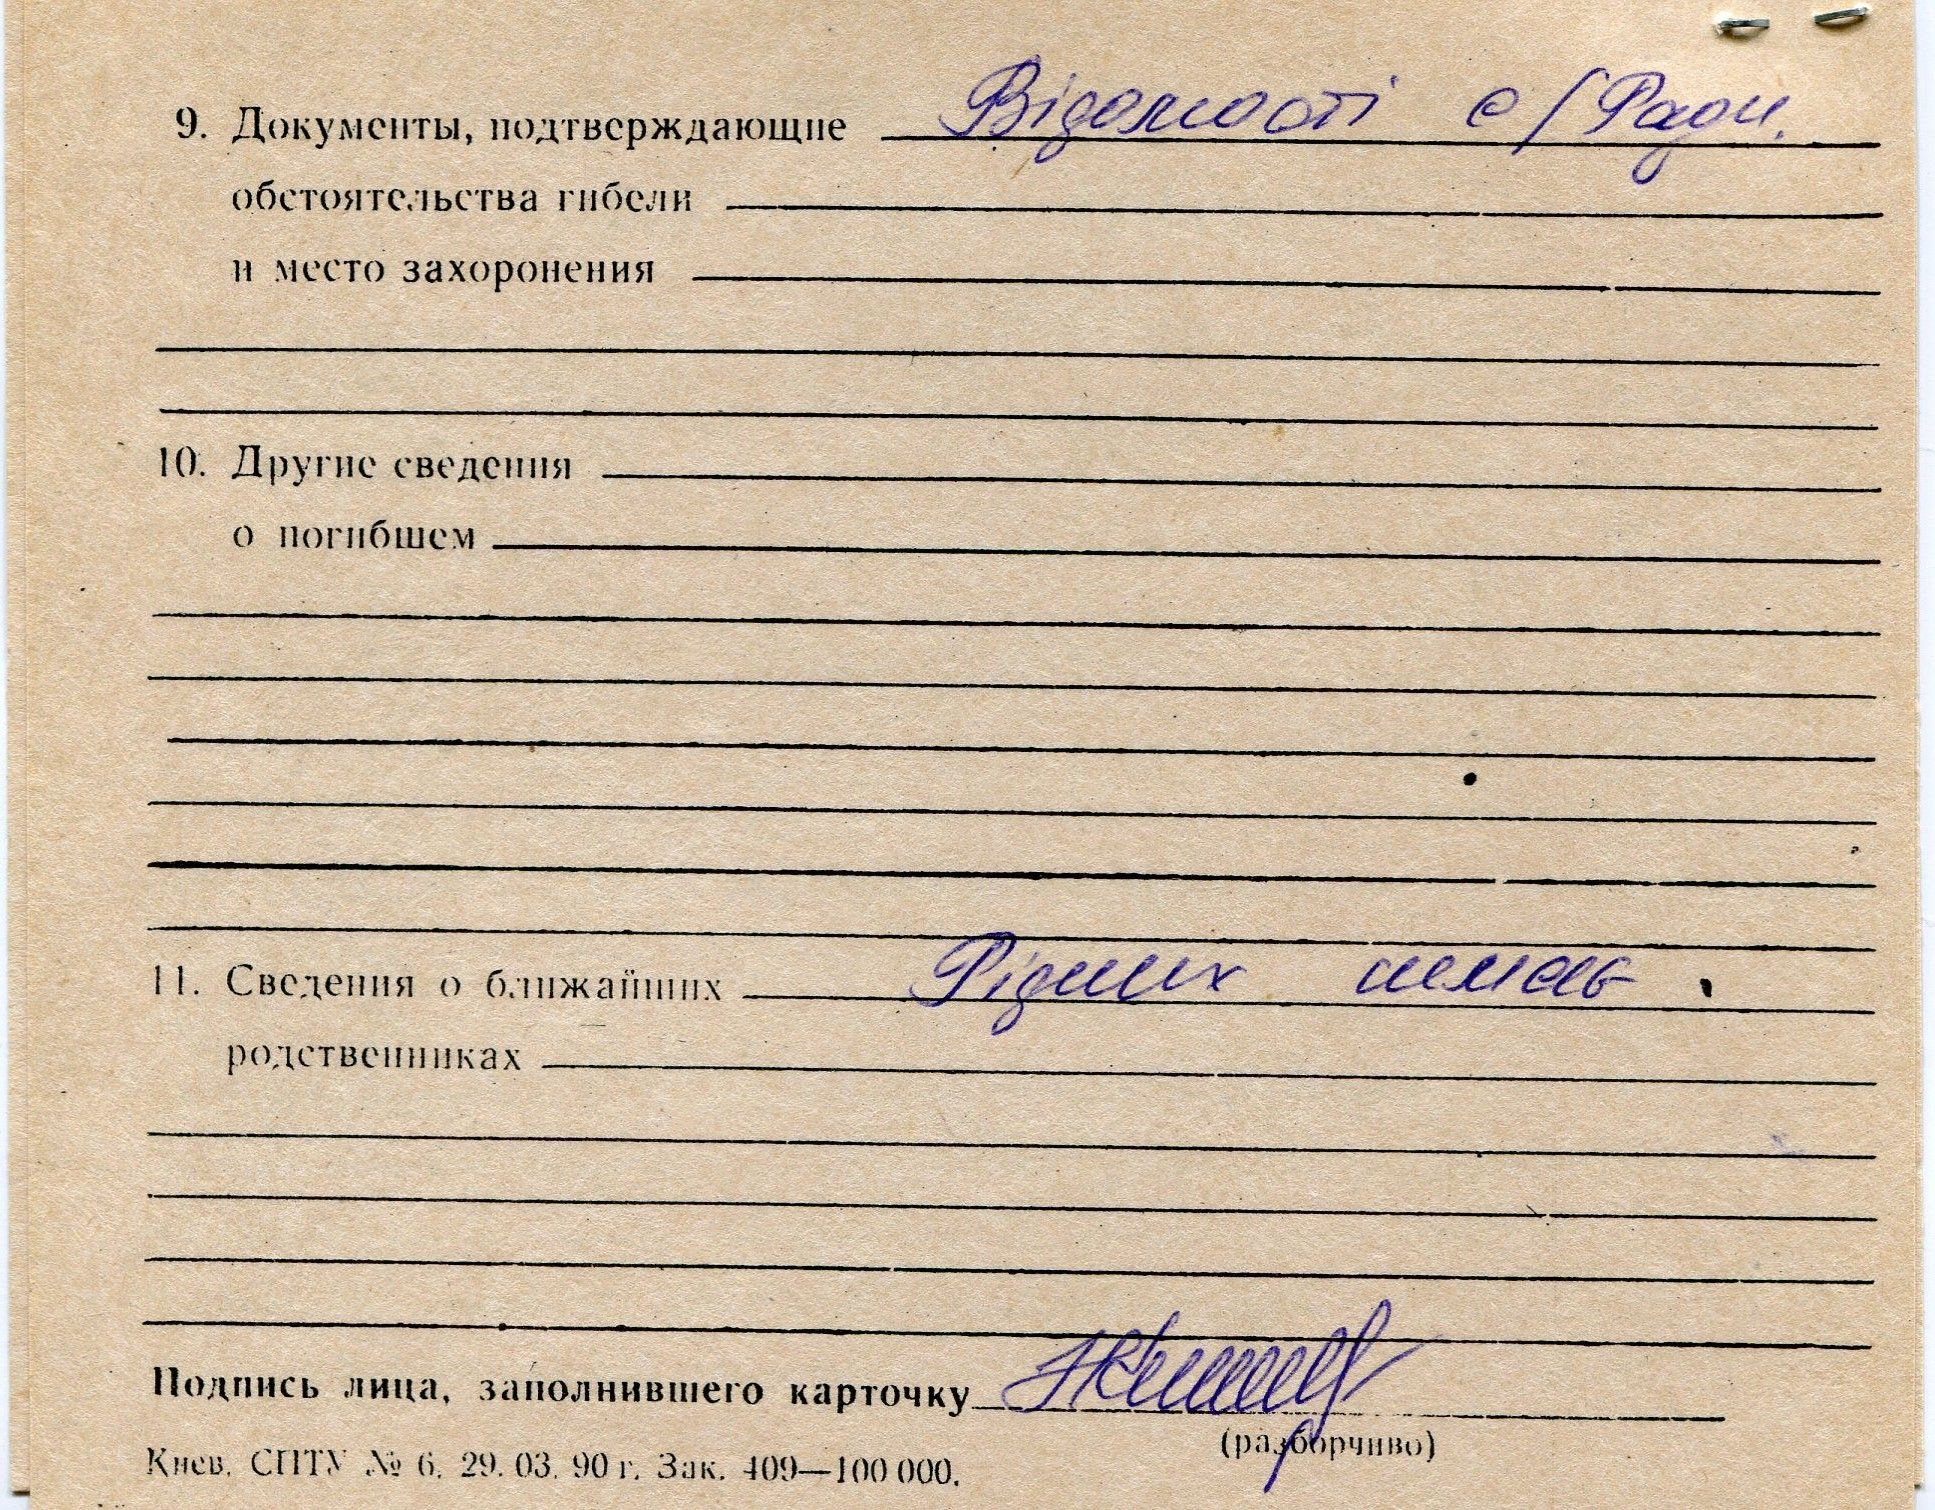 9. Документы, подтверждающие Відомості с/Ради.
обстоятельства гибели
и место захоронения
10. Другие сведения
о погибшем
11. Сведения о ближайших Рідних немає.
родственниках
Подпись лица, заполнившего карточку
(разборчиво)
Киев. СПТУ № 6. 29. 03. 90 г. Зак. 409—100 000.